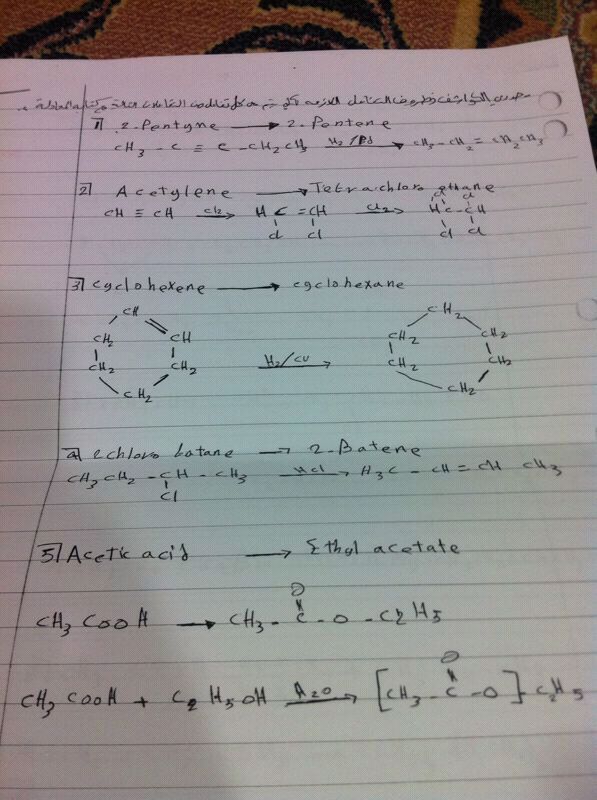 1 2-Pentyne → 2-Pentene
CH3 - C ≡ C - CH2CH3 H2/Pd → CH3-CH2=CH2CH3
2 Acetylene → Tetrachloro ethane
CH ≡ CH Cl2 → HC=CH Cl2 → HC-CH
Cl Cl Cl Cl Cl Cl
3 Cyclohexene → cyclohexane
CH CH2
CH2 CH CH2 CH2
CH2 CH2 H2/Cu → CH2 CH2
CH2 CH2
4 2 chloro butane → 2-Batene
CH3 CH2 - CH - CH3 HCl → H3C - CH = CH CH3
Cl
5 Acetic acid → Ethyl acetate
O
CH3 COOH → CH3 - C - O - C2H5
O
CH3 COOH + C2H5OH H2O → [CH3 - C - O] - C2H5